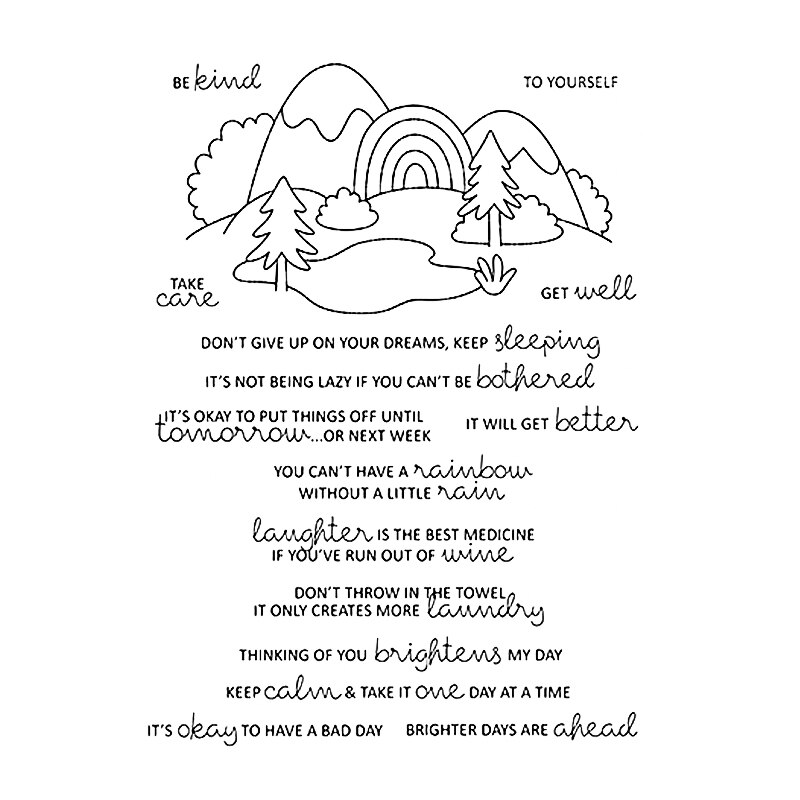 BE kind
TO YOURSELF
TAKE
care
GET well
DON'T GIVE UP ON YOUR DREAMS, KEEP sleeping
IT'S NOT BEING LAZY IF YOU CAN'T BE bothered
IT'S OKAY TO PUT THINGS OFF UNTIL
tomorrow...OR NEXT WEEK
IT WILL GET better
YOU CAN'T HAVE A rainbow
WITHOUT A LITTLE rain
laughter IS THE BEST MEDICINE
IF YOU'VE RUN OUT OF wine
DON'T THROW IN THE TOWEL
IT ONLY CREATES MORE laundry
THINKING OF YOU brightens MY DAY
KEEP calm & TAKE IT one DAY AT A TIME
IT'S okay TO HAVE A BAD DAY
BRIGHTER DAYS ARE ahead